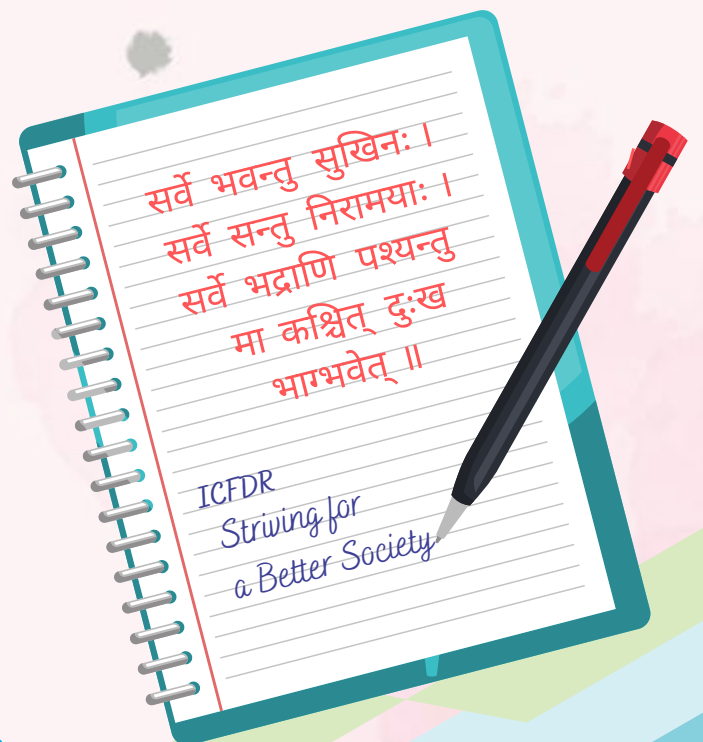 सर्वे भवन्तु सुखिनः ।
सर्वे सन्तु निरामयाः ।
सर्वे भद्राणि पश्यन्तु
मा कश्चित् दुःख
भाग्भवेत् ॥
ICFDR
Striving for
a Better Society